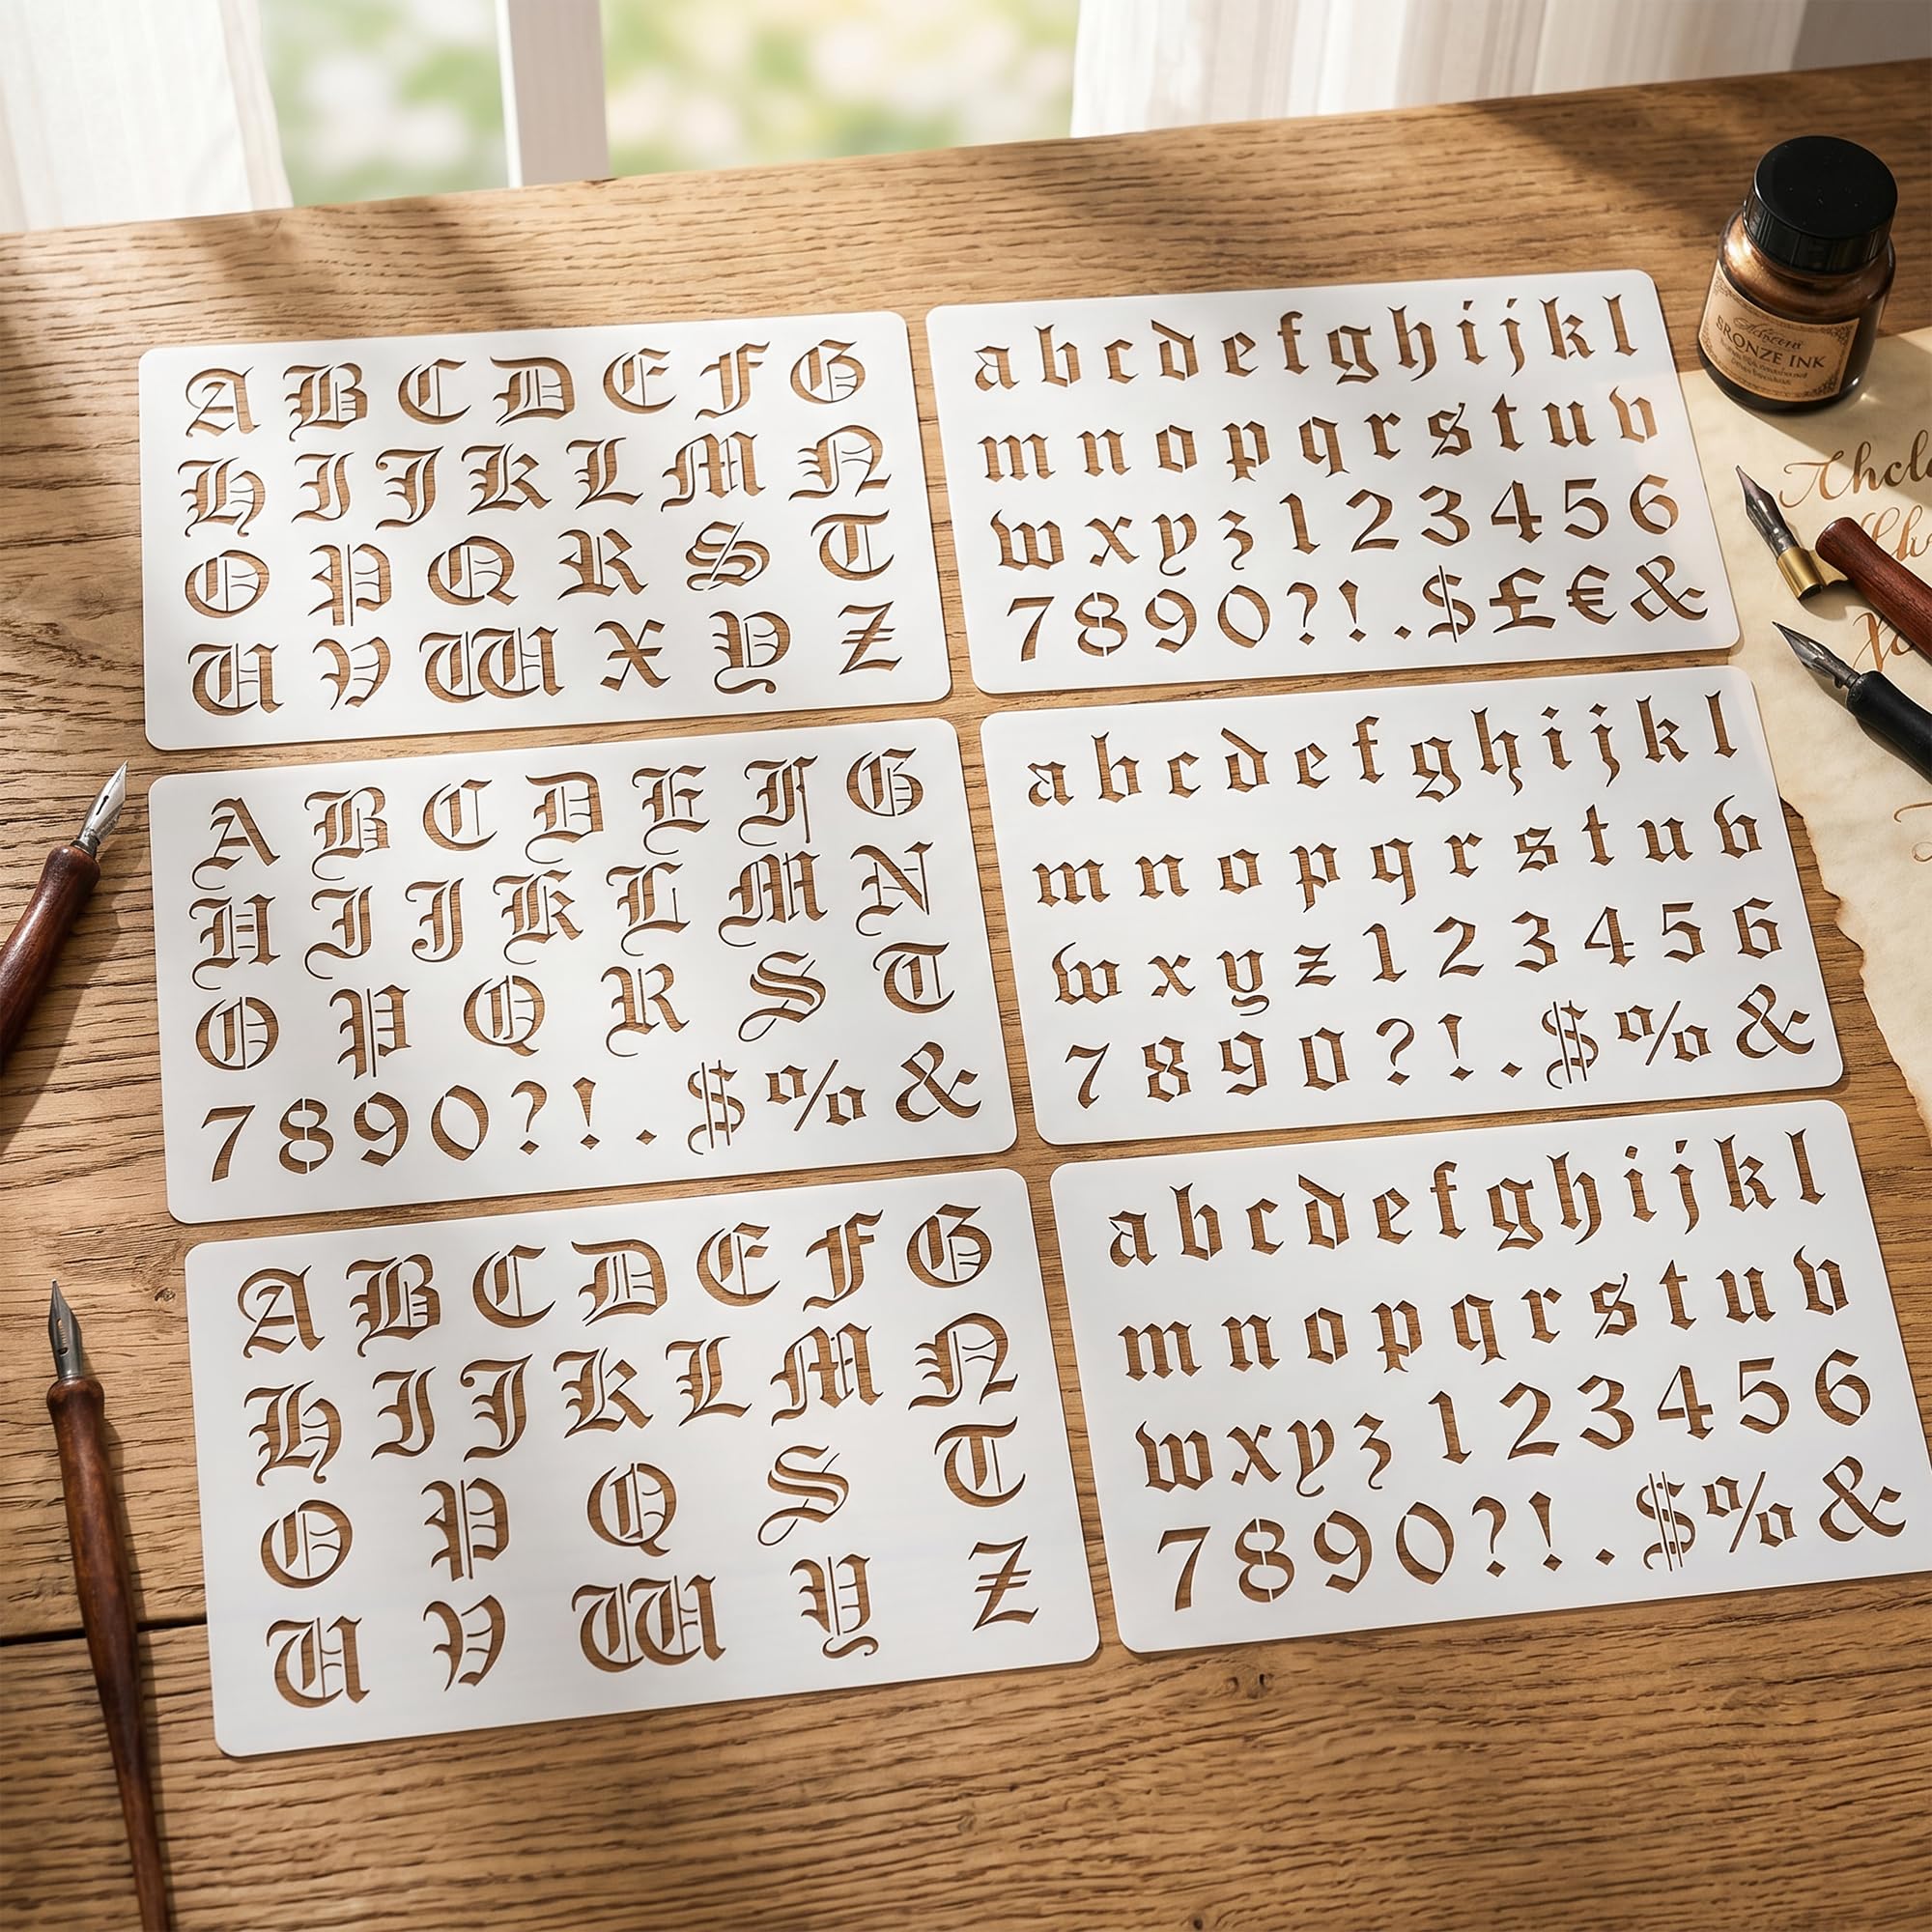 A B C D E F G
H I J K L M N
O P Q R S T
U V W X Y Z
a b c d e f g h i j k l
m n o p q r s t u v
w x y z 1 2 3 4 5 6
7 8 9 0 ? ! . $ £ € &
A B C D E F G
H I J K L M N
O P Q R S T
7 8 9 0 ? ! . $ % &
a b c d e f g h i j k l
m n o p q r s t u v
w x y z 1 2 3 4 5 6
7 8 9 0 ? ! . $ % &
A B C D E F G
H I J K L M N
O P Q S T
U V W Y Z
a b c d e f g h i j k l
m n o p q r s t u v
w x y z 1 2 3 4 5 6
7 8 9 0 ? ! . $ % &
BRONZE INK